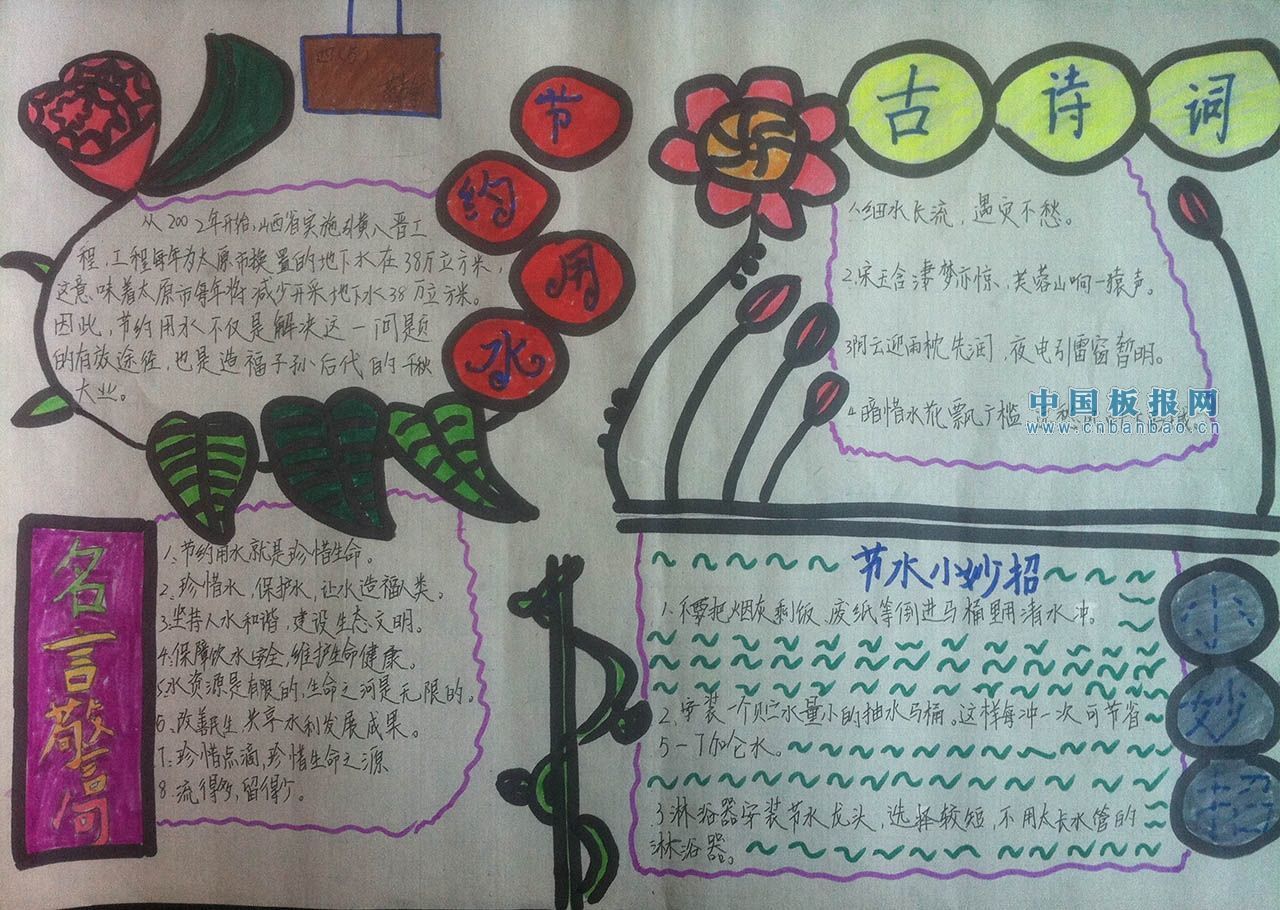 四(5)
节约用水
从2002年开始,山西省实施引黄入晋工
程,工程每年为太原市换置的地下水在38万立方米,
这意味着太原市每年将减少开采地下水38万立方米。
因此,节约用水不仅是解决这一问题
的有效途径,也是造福子孙后代的千秋
大业。
古诗词
1.细水长流,遇灾不愁。
2.宋玉含凄梦亦惊,芙蓉山响一猿声。
3阴云迎雨枕先润,夜电引雷窗暂明。
4.暗惜水花飘广槛
中国板报网
www.cnbanbao.cn
名言警句
1.节约用水就是珍惜生命。
2.珍惜水,保护水,让水造福人类。
3.坚持人水和谐,建设生态文明。
4.保障饮水安全,维护生命健康。
5.水资源是有限的,生命之河是无限的。
6.改善民生共享水利发展成果。
7.珍惜点滴,珍惜生命之源
8.流得多,留得少。
节水小妙招
1.不要把烟灰剩饭、废纸等倒进马桶里用清水冲。
2.安装一个贮水量小的抽水马桶。这样每冲一次可节省
5—7加仑水。
3淋浴器安装节水龙头,选择较短,不用太长水管的
淋浴器。
小妙招